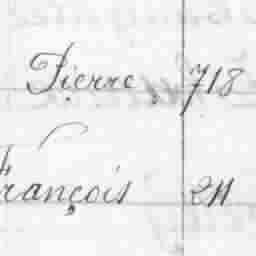 Pierre, 718
François 211